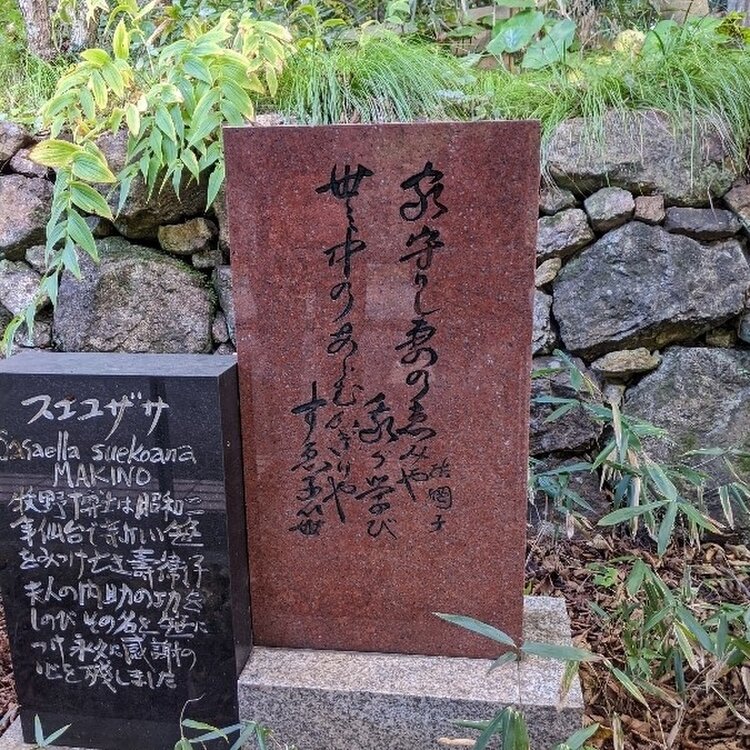 家守りし妻の恵みや
我が学び
結網子
世の中のあらむかぎりや
すゑ子笹
スエコザサ
Sasaella suekoana
MAKINO
牧野博士は昭和二
年仙台で新しい笹
をみつけ亡き壽衛子
夫人の内助の功を
しのび その名を笹に
つけ永久に感謝の
心を残しました